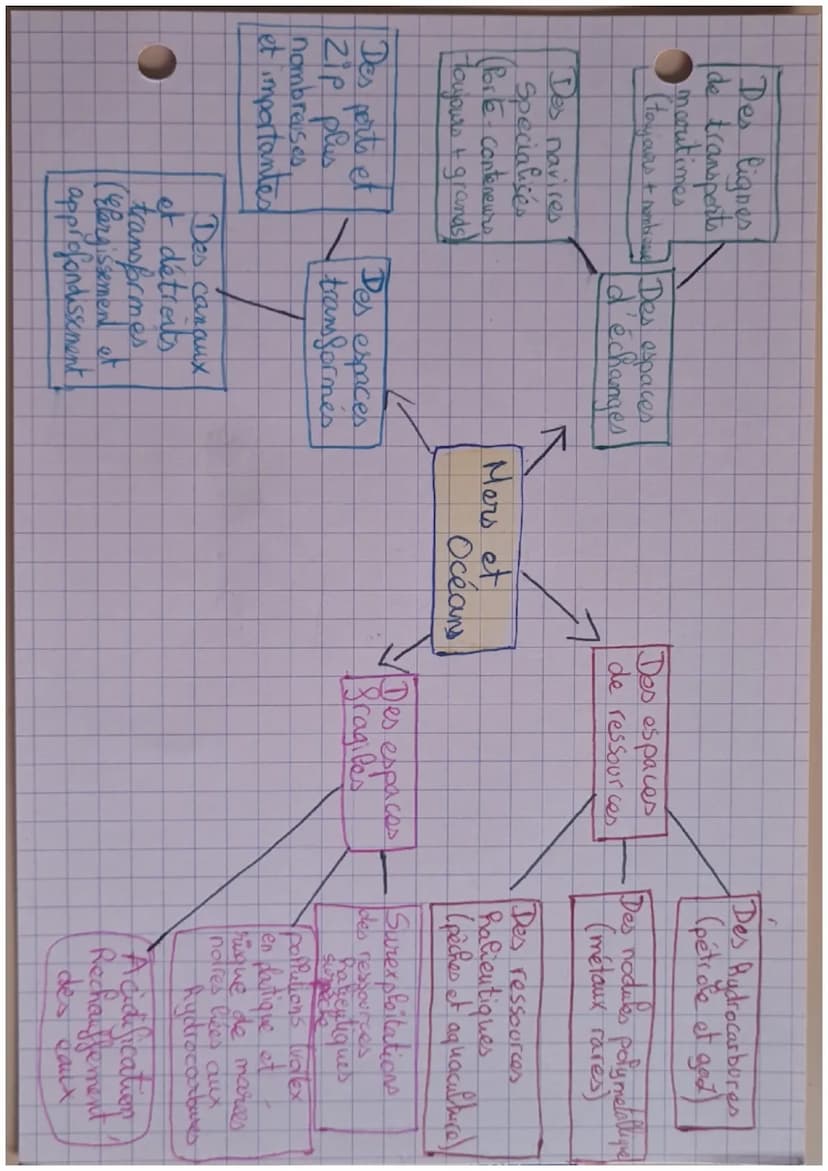 Des lignes
de transports
maritimes
(toujours + nombreuses
Des navires
spécialisés
(Porte conteneurs
toujours + grands)
Des espaces
d'échanges
Des ports et
Zip plus
nombreuses
et importantes
Des canaux
et détroits
transformés
(élargissement et
approfondissement
Des espaces
transformés
Mers et
Océans
Des espaces
de ressources
Des hydrocarbures
(pétrole et gaz)
Des nodules polymétalliques
(métaux rares)
Des ressources
halieutiques
(pêches et aquaculture)
Des espaces
fragiles
Surexploitations
des ressources
halieutiques
pollutions
en plastique et
risque de marées
noires liées aux
hydrocarbures
Acidification,
Rechauffement
des eaux